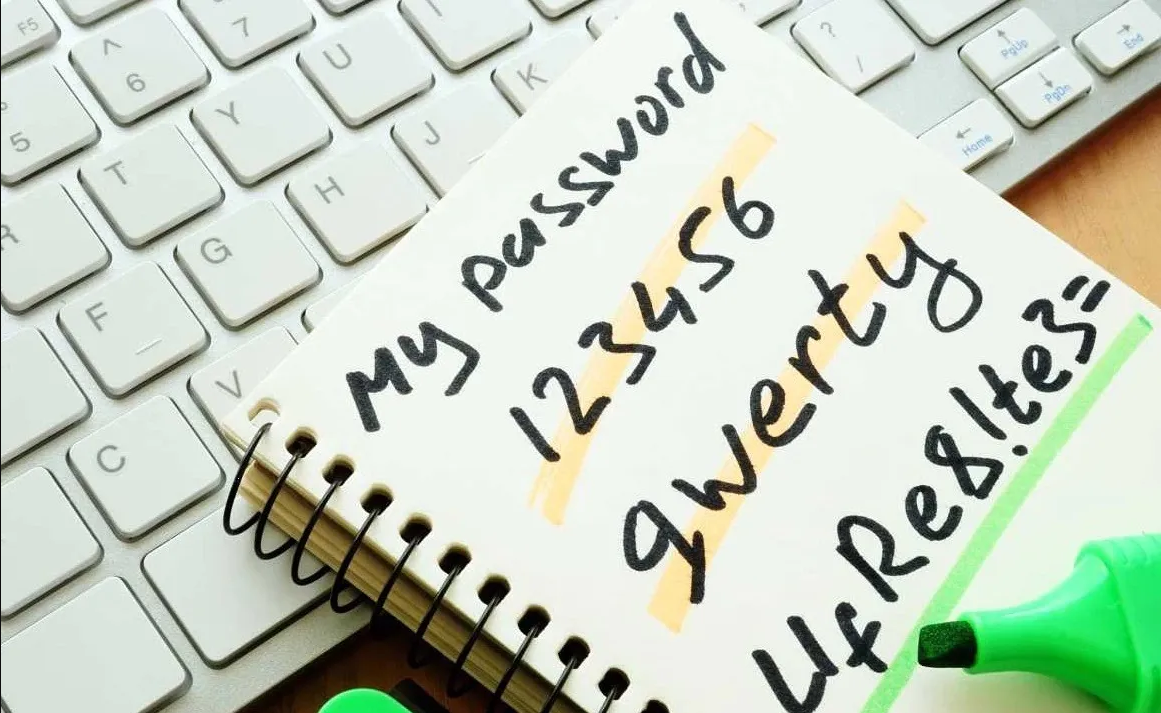 My password
123456
qwerty
UfRe8!te3=
F5
^
6
7
U
I
?
/
PgUp
End
PgDn
Home
5
Y
K
J
T
H
R
G
F
V
C